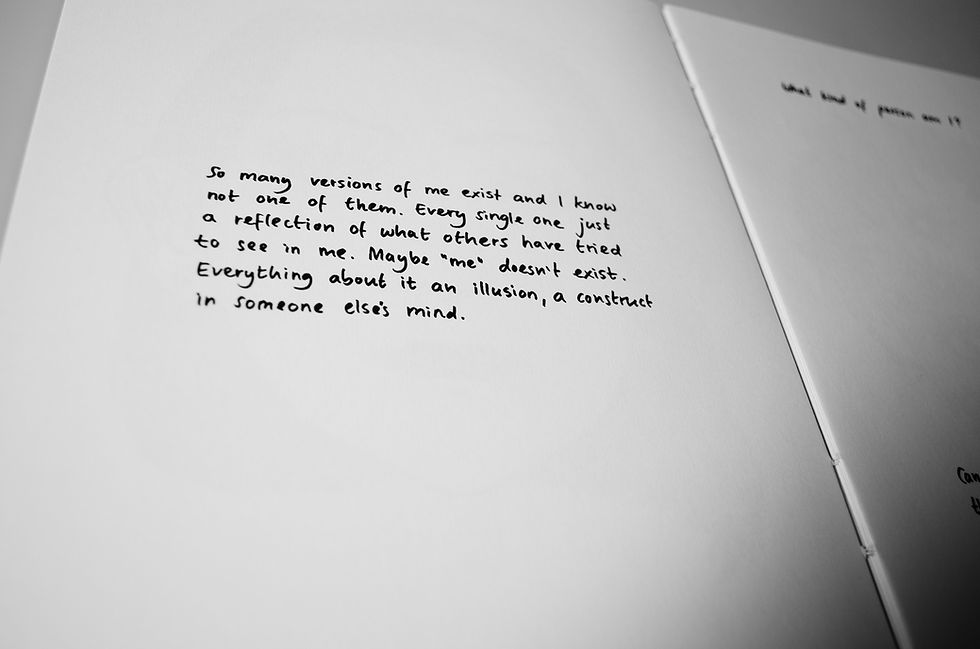 So many versions of me exist and I know
not one of them. Every single one just
a reflection of what others have tried
to see in me. Maybe "me" doesn't exist.
Everything about it an illusion, a construct
in someone else's mind.
What kind of person am I?
Can